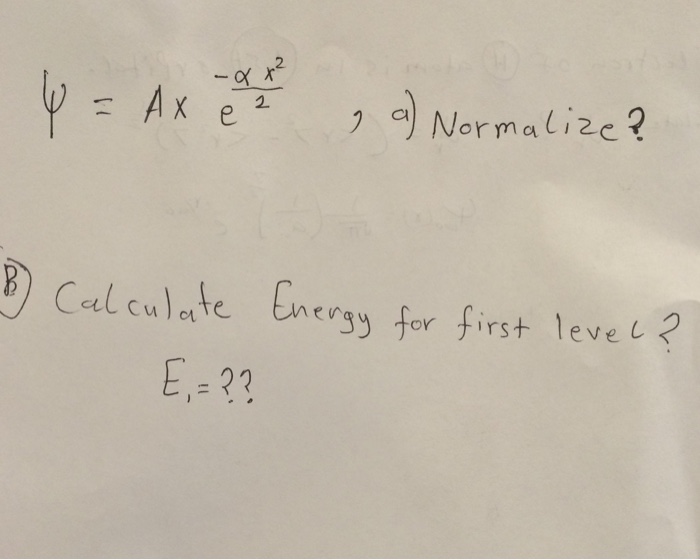 ψ = Ax e^(-αx²/2) , a) Normalize?
B) Calculate Energy for first level?
E₁ = ??